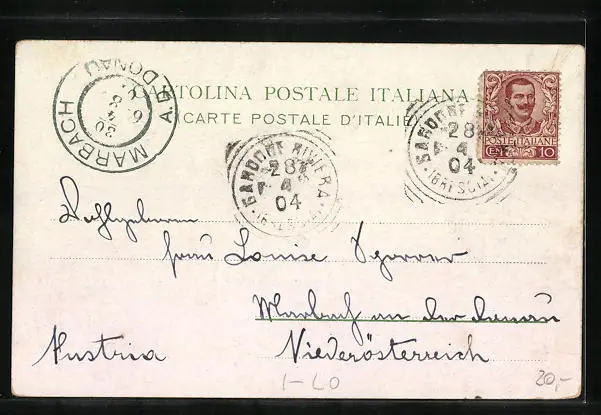 CARTOLINA POSTALE ITALIANA
CARTE POSTALE D'ITALIE
MARBACH A.D. DONAU
30
GARDONE RIVIERA
28
4
04
(BRESCIA)
GARDONE RIVIERA
28
4
04
(BRESCIA)
POSTE ITALIANE
CENT. 10
Frau Louise
Marbach an der Donau
Austria
Niederösterreich
1-LO
20,-